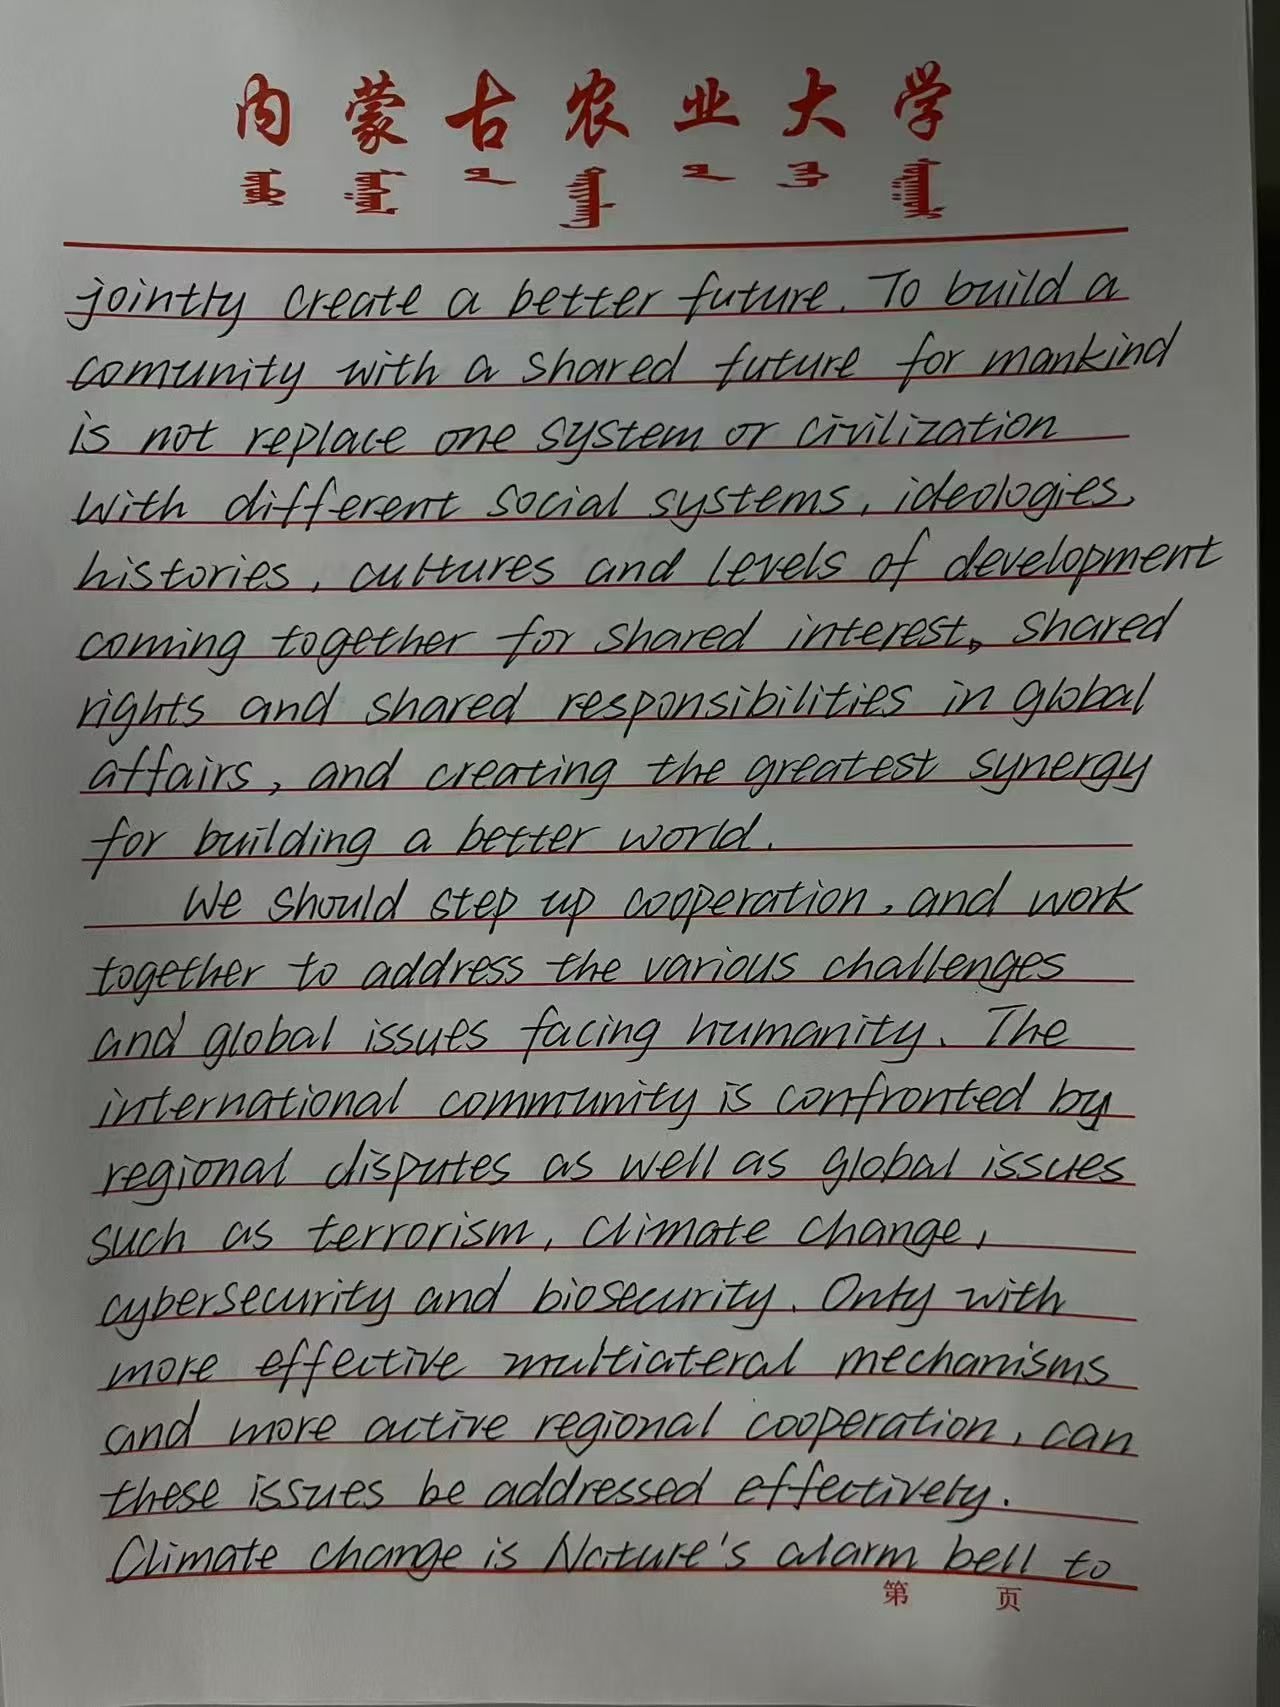 内蒙古农业大学
jointly create a better future. To build a
comunity with a shared future for mankind
is not replace one system or civilization
with different social systems, ideologies,
histories, cultures and levels of development
coming together for shared interest, shared
rights and shared responsibilities in global
affairs, and creating the greatest synergy
for building a better world.
We should step up cooperation, and work
together to address the various challenges
and global issues facing humanity. The
international community is confronted by
regional disputes as well as global issues
such as terrorism, climate change,
cybersecurity and biosecurity. Only with
more effective multiateral mechanisms
and more active regional cooperation, can
these issues be addressed effectively.
Climate change is Nature's alarm bell to
第 页